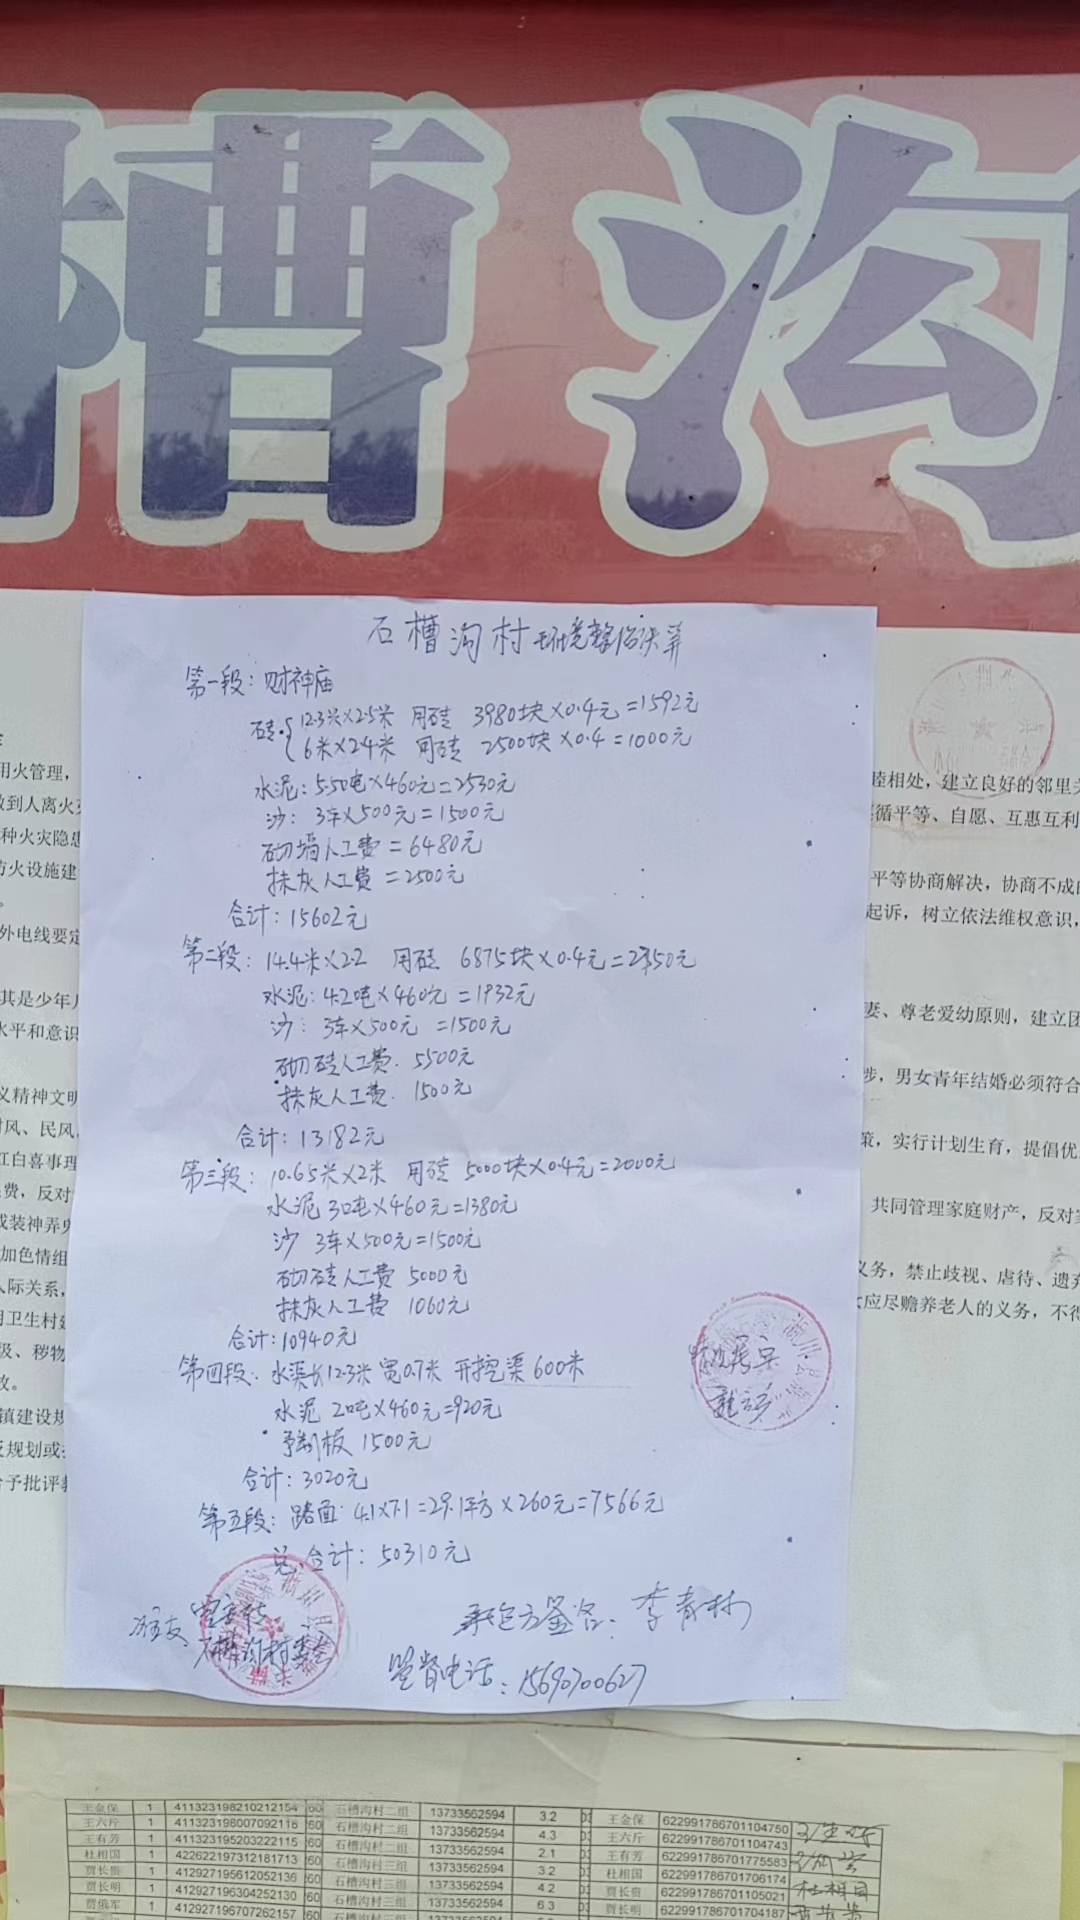 槽沟
石槽沟村环境整治决算
第一段：财神庙
砖：{12.3米×2.5米 用砖 3980块×0.4元=1592元
6米×2.4米 用砖 2500块×0.4=1000元
水泥：5.50吨×460元=2530元
沙：3车×500元=1500元
砌墙人工费=6480元
抹灰人工费=2500元
合计：15602元
第二段：14.4米×2.2 用砖 6875块×0.4元=2750元
水泥：4.2吨×460元=1932元
沙：3车×500元=1500元
砌砖人工费．5500元
抹灰人工费．1500元
合计：13182元
第三段：10.65米×2米 用砖 5000块×0.4元=2000元
水泥 3.0吨×460元=1380元
沙 3车×500元=1500元
砌砖人工费 5000元
抹灰人工费 1060元
合计：10940元
第四段：水渠长12.3米 宽0.7米 开挖渠600米
水泥 2吨×460元=920元
予制板 1500元
合计：3020元
第五段：路面：4.1×7.1=29.1平方×260元=7566元
总合计：50310元
石槽沟村委会
承包方签名：李青林
监督电话：15690700627
用火管理，
种火灾隐患
防火设施建
外电线要定
其是少年儿
水平和意识
义精神文明
风、民风
红白喜事理
费，反对
或装神弄鬼
加色情组
人际关系，
卫生村建
圾、秽物
放。
镇建设规
反规划或
给予批评教
睦相处，建立良好的邻里关
循平等、自愿、互惠互利
平等协商解决，协商不成的
起诉，树立依法维权意识，
妻、尊老爱幼原则，建立团
涉，男女青年结婚必须符合
策，实行计划生育，提倡优
共同管理家庭财产，反对
义务，禁止歧视、虐待、遗弃
应尽赡养老人的义务，不得
王金保 1 411323198210212154 石槽沟村二组 13733562594 3.2 王金保 622991786701104750
王六斤 1 411323198007092116 石槽沟村二组 13733562594 4.3 王六斤 622991786701104743
王有芳 1 411323195203222115 石槽沟村二组 13733562594 2.1 王有芳 622991786701775583
杜相国 1 422622197312181713 石槽沟村三组 13733562594 3.2 杜相国 622991786701706174 杜相国
贾长贵 1 412927195612052136 石槽沟村三组 13733562594 4.2 贾长贵 622991786701105021
贾长明 1 412927196304252130 石槽沟村三组 13733562594 6.3 贾长明 622991786701704187
贾俄军 1 412927196707262157 石槽沟村三组